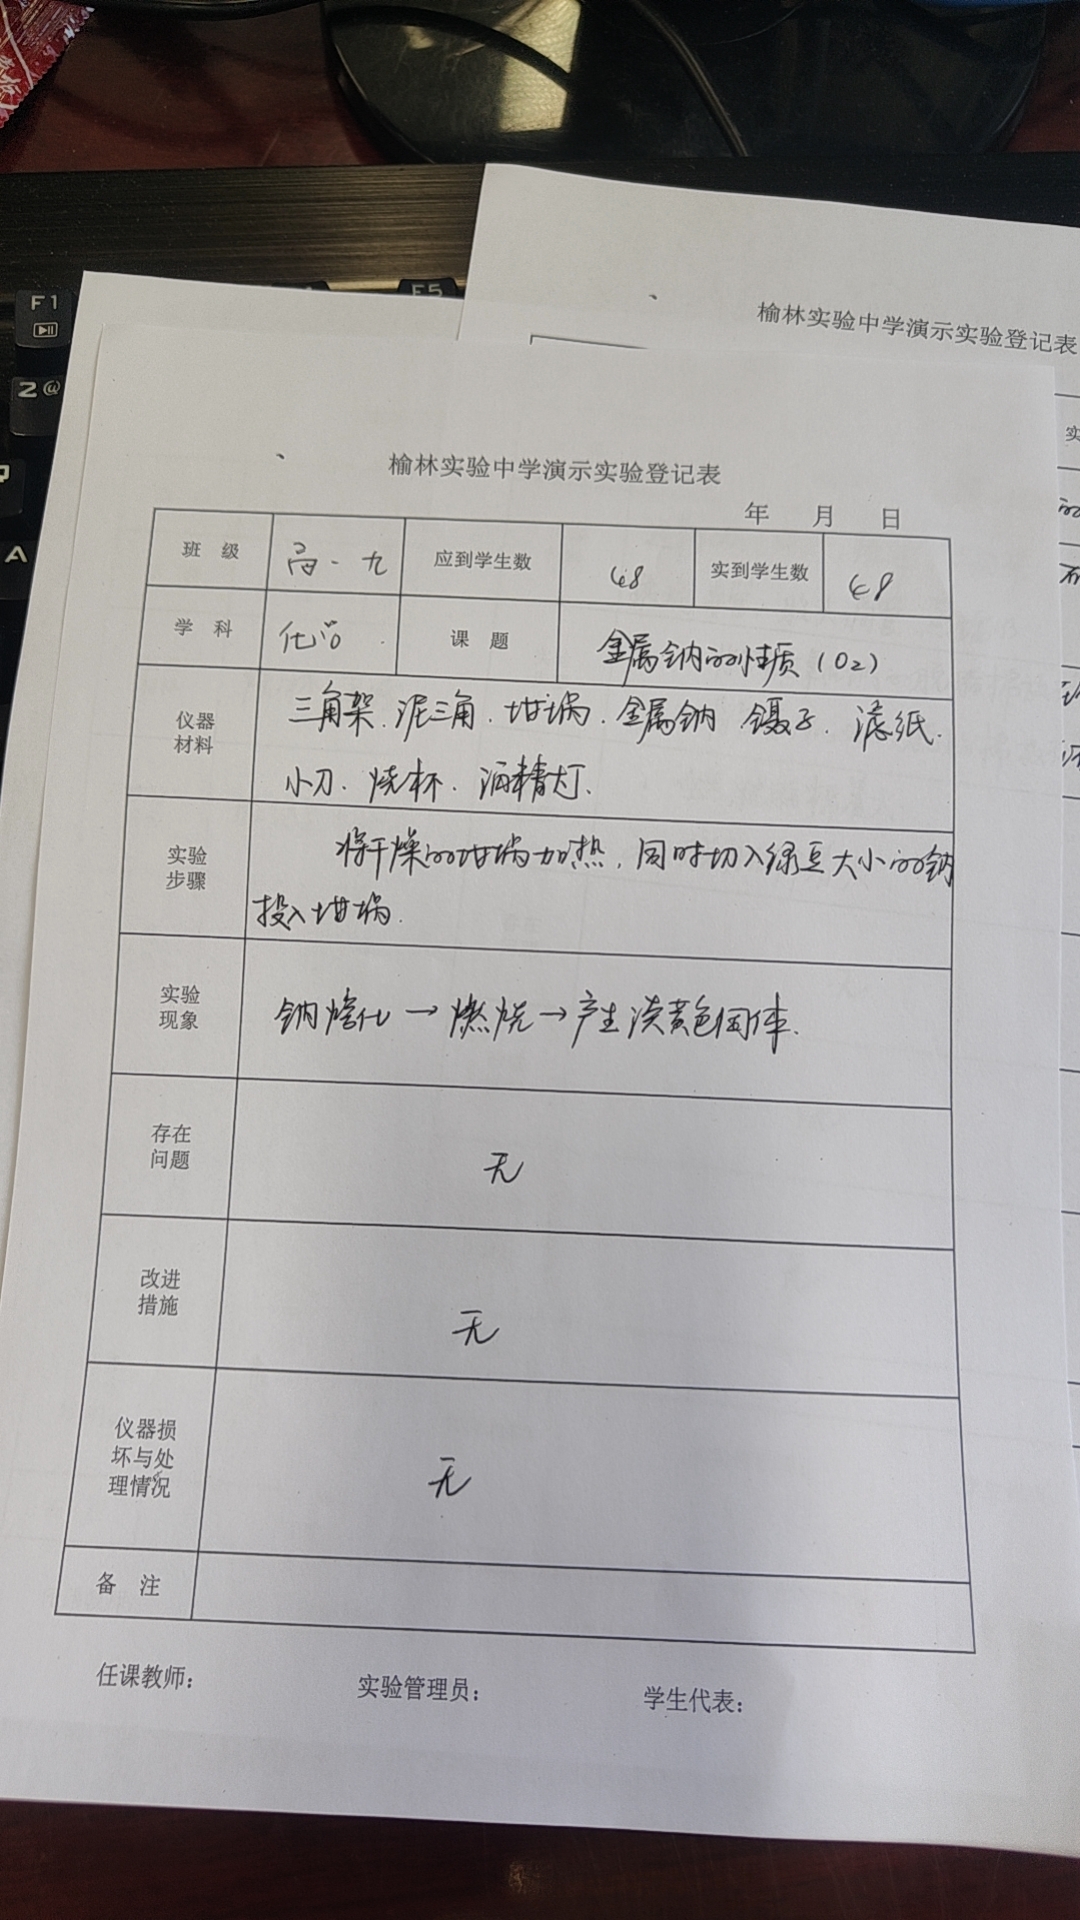 F1
F5
2@
A
榆林实验中学演示实验登记表
实
榆林实验中学演示实验登记表
年 月 日
班 级 高一九 应到学生数 48 实到学生数 48
学 科 化学 课 题 金属钠的性质（O2）
仪器材料
三角架、泥三角、坩埚、金属钠 镊子、滤纸、
小刀、烧杯、酒精灯、
实验步骤
将干燥的坩埚加热，同时切入绿豆大小的钠
投入坩埚.
实验现象
钠熔化→燃烧→产生淡黄色固体.
存在问题
无
改进措施
无
仪器损坏与处理情况
无
备 注
任课教师： 实验管理员： 学生代表：